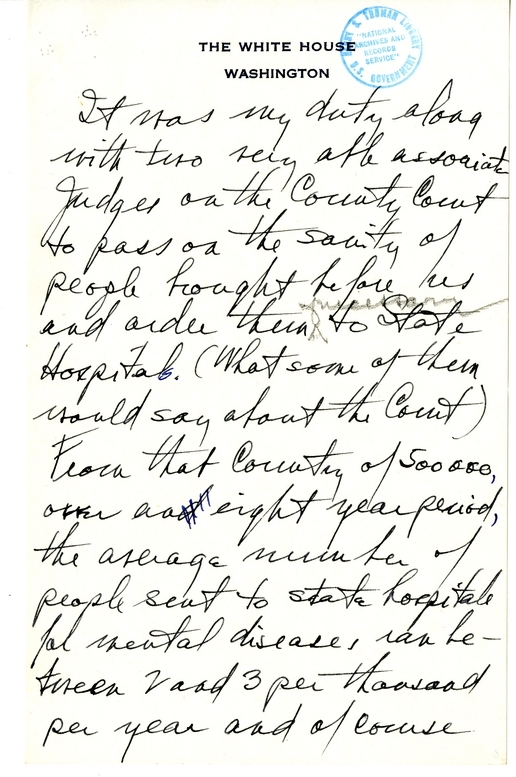 THE WHITE HOUSE
WASHINGTON
HARRY S. TRUMAN LIBRARY
"NATIONAL
ARCHIVES AND
RECORDS
SERVICE"
U.S. GOVERNMENT
It was my duty along
with two very able associate
Judges on the County Court
to pass on the sanity of
people brought before us
and order them to State
Hospitals. (What some of them
would say about the Court)
From that County of 500000,
over an eight year period,
the average number of
people sent to state hospitals
for mental diseases ran be-
tween 2 and 3 per thousand
per year and of course